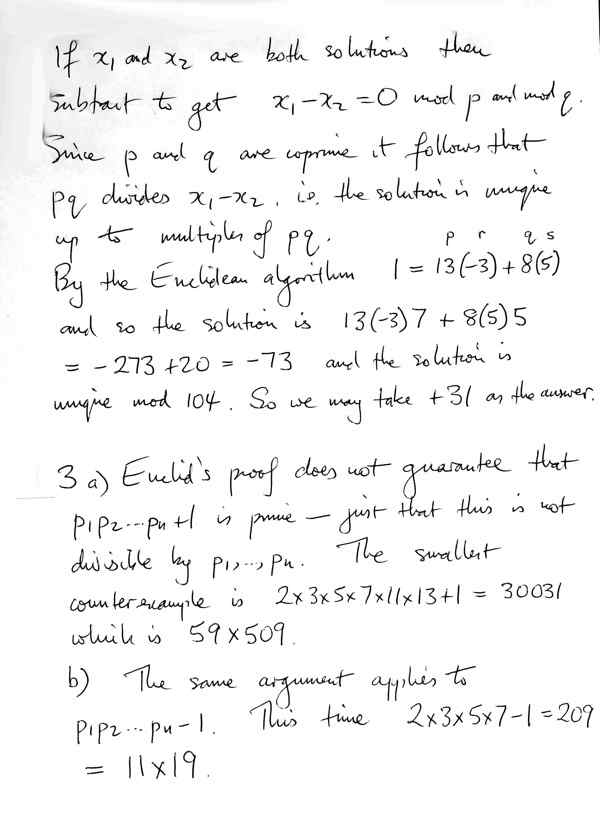 If x₁ and x₂ are both solutions then
subtract to get x₁-x₂ = 0 mod p and mod q.
Since p and q are coprime it follows that
pq divides x₁-x₂, i.e. the solution is unique
up to multiples of pq.
p r q s
By the Euclidean algorithm 1 = 13(-3)+8(5)
and so the solution is 13(-3)7 + 8(5)5
= -273+20 = -73 and the solution is
unique mod 104. So we may take +31 as the answer.
3 a) Euclid's proof does not guarantee that
p₁p₂...pₙ+1 is prime – just that this is not
divisible by p₁,...,pₙ. The smallest
counterexample is 2x3x5x7x11x13+1 = 30031
which is 59x509.
b) The same argument applies to
p₁p₂...pₙ-1. This time 2x3x5x7-1=209
= 11x19.